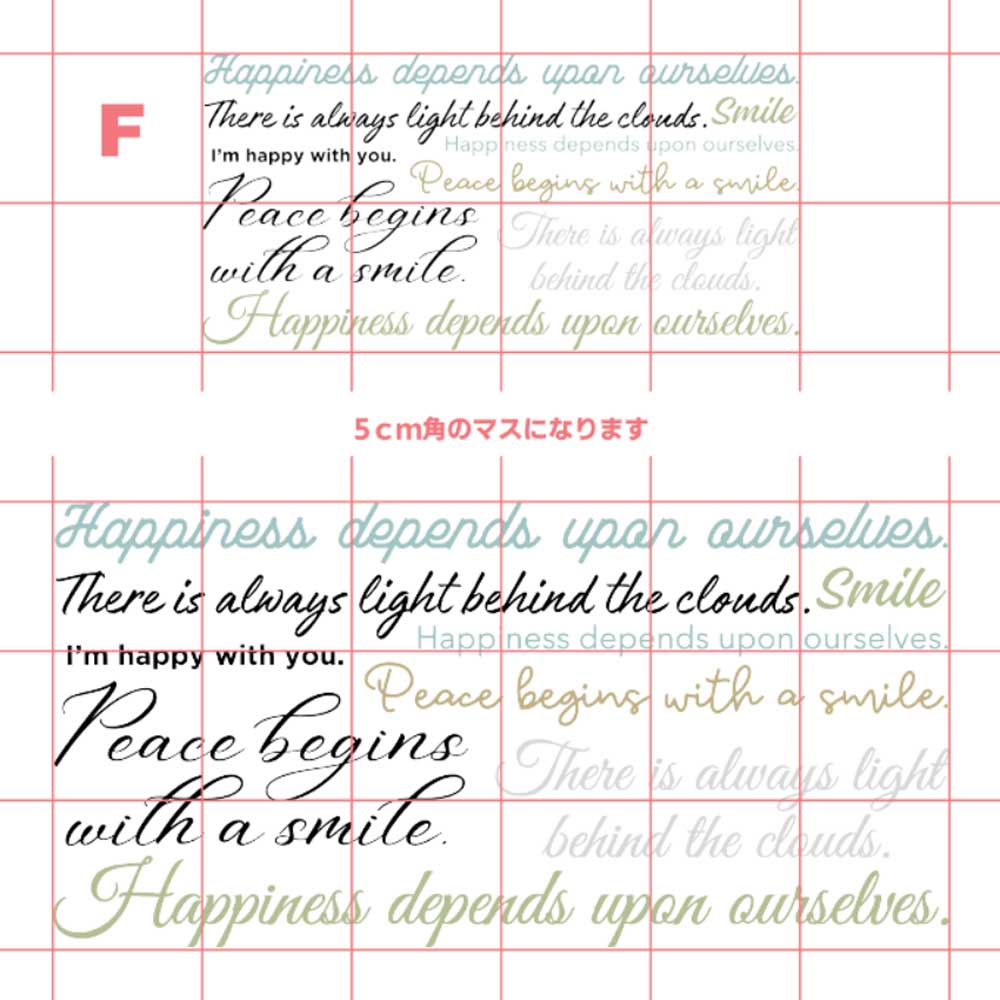 Happiness depends upon ourselves.
F
There is always light behind the clouds. Smile
Happiness depends upon ourselves.
I'm happy with you.
Peace begins with a smile.
Peace begins
with a smile.
There is always light
behind the clouds.
Happiness depends upon ourselves.
5cm角のマスになります
Happiness depends upon ourselves.
There is always light behind the clouds. Smile
Happiness depends upon ourselves.
I'm happy with you.
Peace begins with a smile.
Peace begins
with a smile.
There is always light
behind the clouds.
Happiness depends upon ourselves.